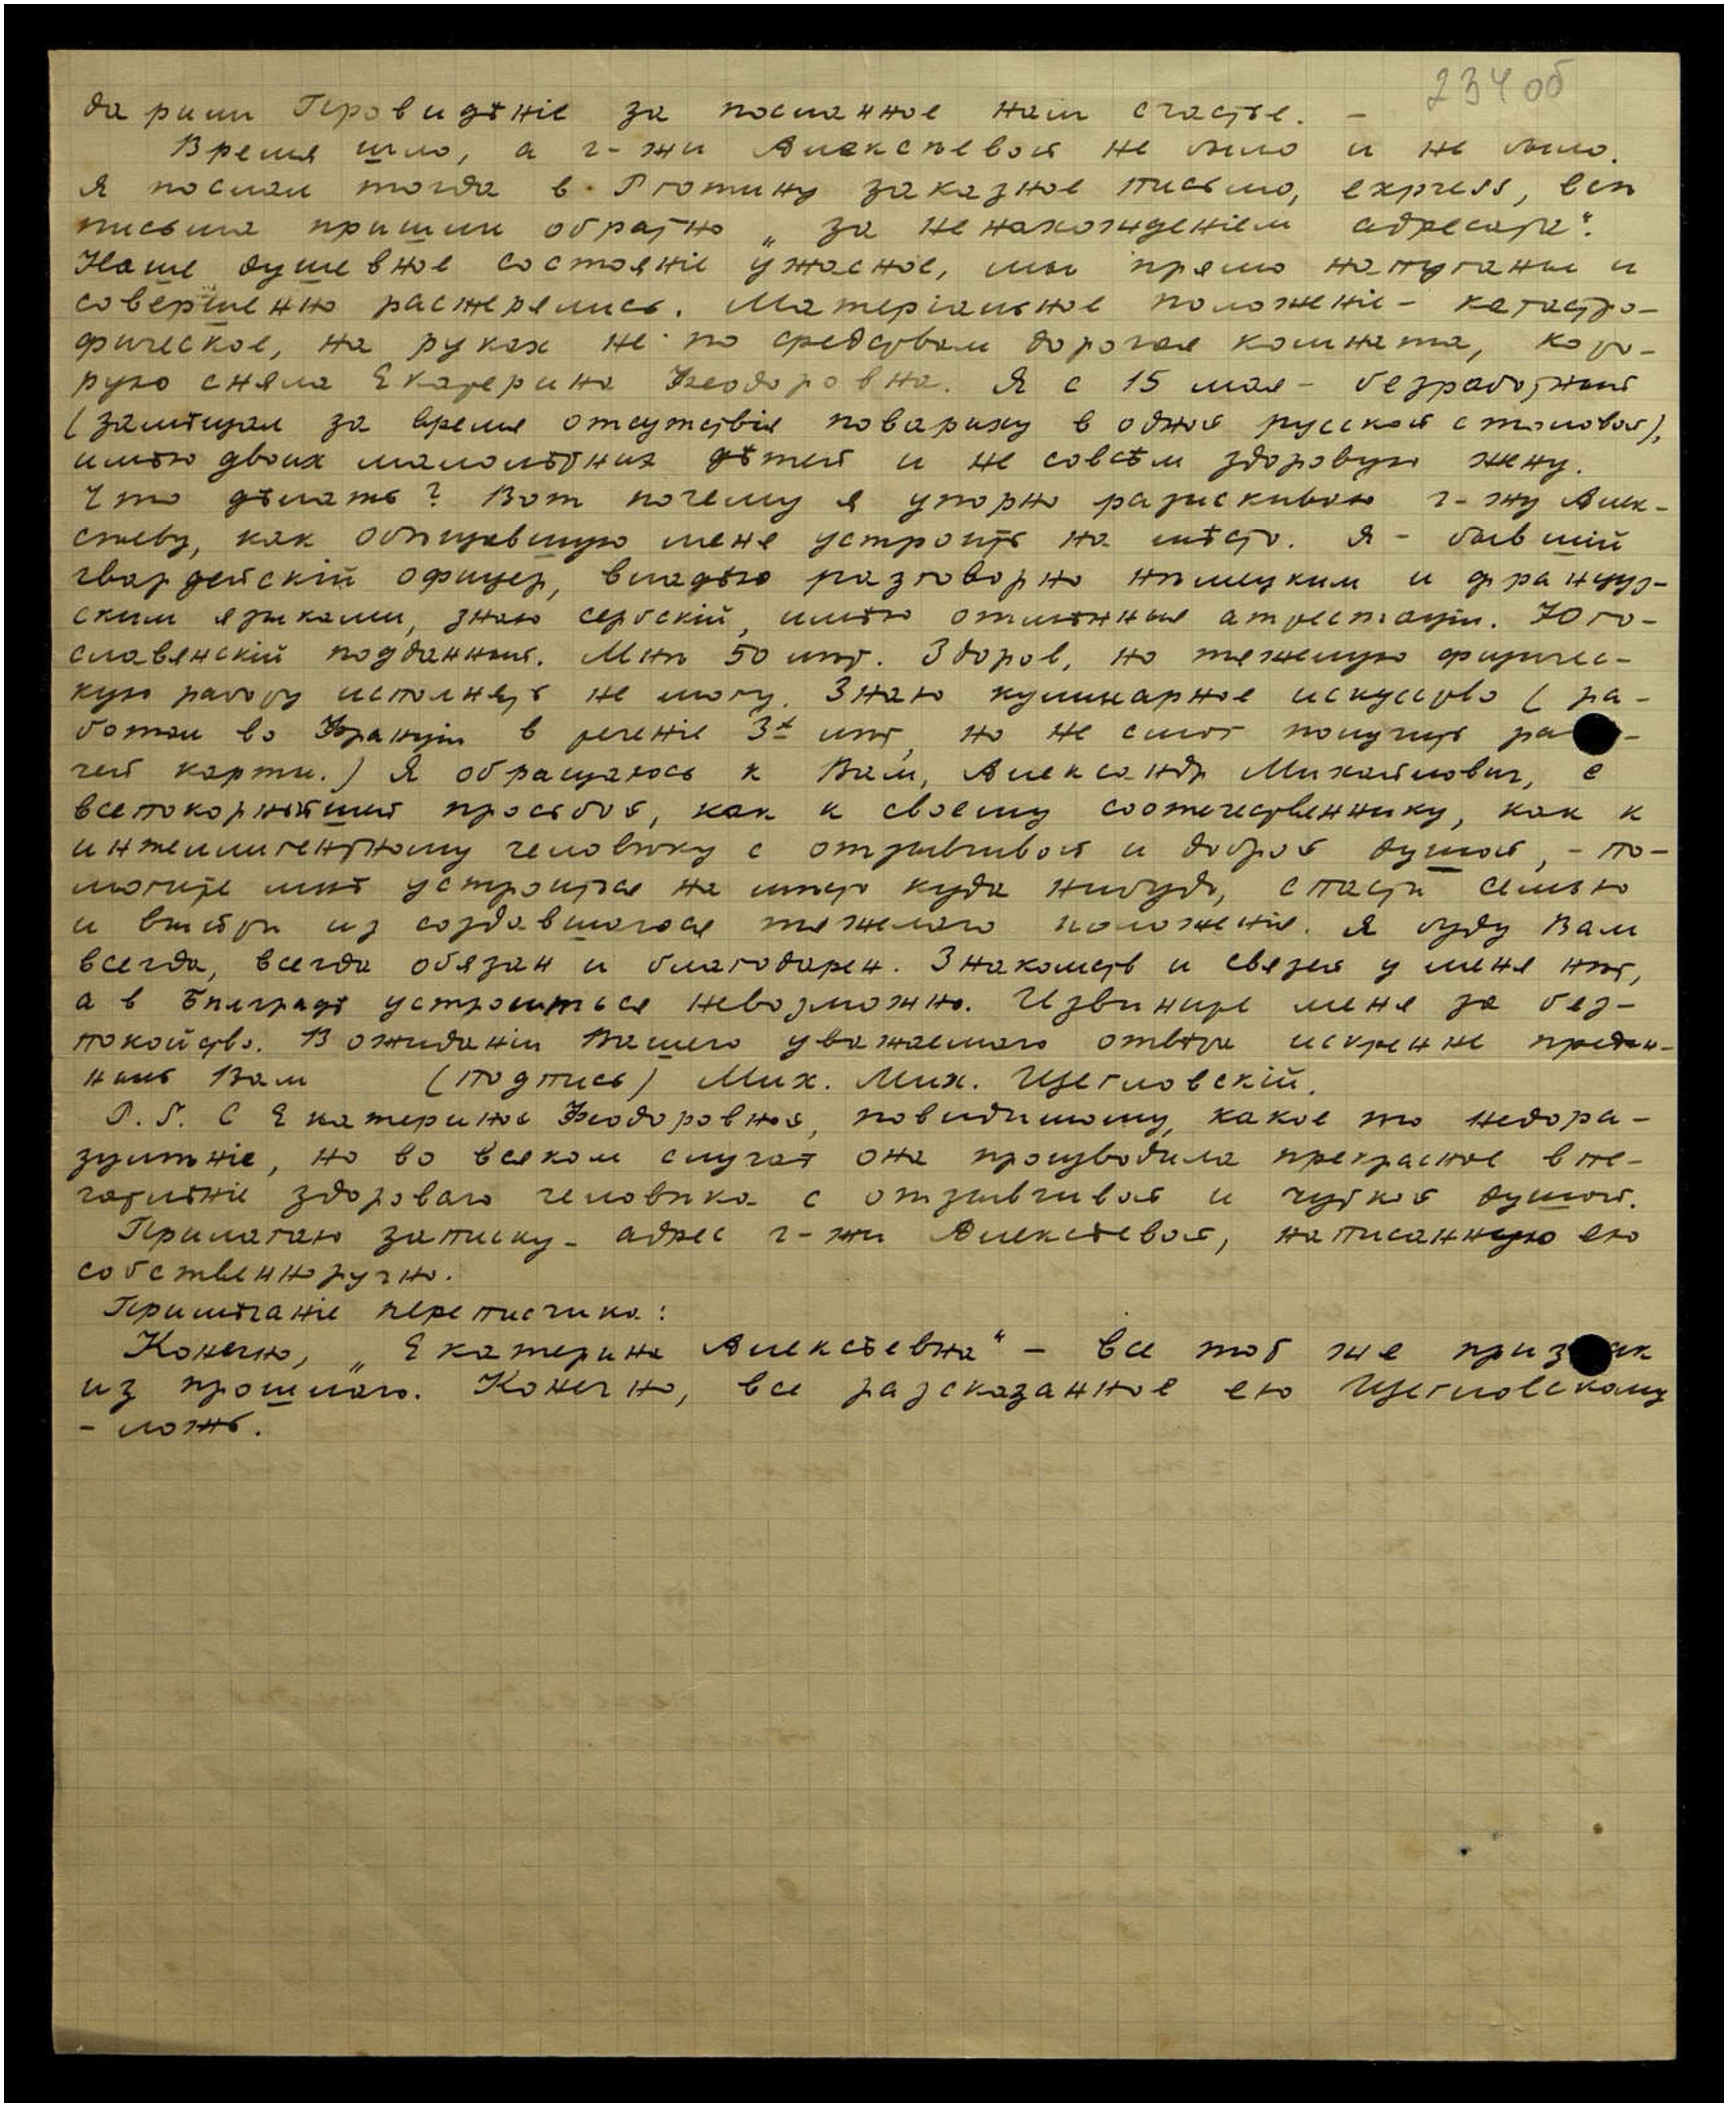 234 об
дарили Провидѣніе за посланное нам счастье. –
Время шло, а г-жи Алексѣевой не было и не было.
Я послал тогда в Рготину заказное письмо, express, всѣ
письма пришли обратно „за ненахожденіем адресата“.
Наше душевное состояніе ужасное, мы прямо напуганы и
совершенно растерялись. Матеріальное положеніе – катастро-
фическое, на руках не по средствам дорогая комната, кото-
рую сняла Екатерина Феодоровна. Я с 15 мая – безработный
(замѣщал за время отсутствія повариху в одной русской столовой),
имѣю двоих малолѣтних дѣтей и не совсѣм здоровую жену.
Что дѣлать? Вот почему я упорно разыскиваю г-жу Алек-
сѣеву, как обѣщавшую меня устроить на мѣсто. Я – бывшій
гвардейскій офицер, владѣю разговорно нѣмецким и француз-
ским языками, знаю сербскій, имѣю отличныя атрестаціи. Юго-
славянскій подданный. Мнѣ 50 лѣт. Здоров, но тяжелую физичес-
кую работу исполнять не могу. Знаю кулинарное искусство (ра-
ботал во Франціи в теченіе 3х лѣт, но не смог получить ра-
чей карты.) Я обращаюсь к Вам, Александр Михайлович, с
всепокорнѣйшей просьбой, как к своему соотечественнику, как к
интеллигентному человѣку с отзывчивой и доброй душой, – по-
могите мнѣ устроиться на мѣсто куда нибудь, спасти семью
и выйти из создавшагося тяжелаго положенія. Я буду Вам
всегда, всегда обязан и благодарен. Знакомств и связей у меня нѣт,
а в Бѣлградѣ устроиться невозможно. Извините меня за без-
покойство. В ожиданіи Вашего уважаемаго отвѣта искренне предан-
ный Вам (подпись) Мих. Мих. Щегловскій.
P.S. С Екатериной Феодоровной, повидимому, какое то недора-
зумѣніе, но во всяком случаѣ она производила прекрасное впе-
чатлѣніе здороваго человѣка с отзывчивой и чуткой душой.
Прилагаю записку – адрес г-жи Алексѣевой, написанную ею
собственноручно.
Примѣчаніе переписчика:
Конечно, „Екатерина Алексѣевна“ – все тот же призрак
из прошлаго. Конечно, все разсказанное ею Щегловскому
– ложь.